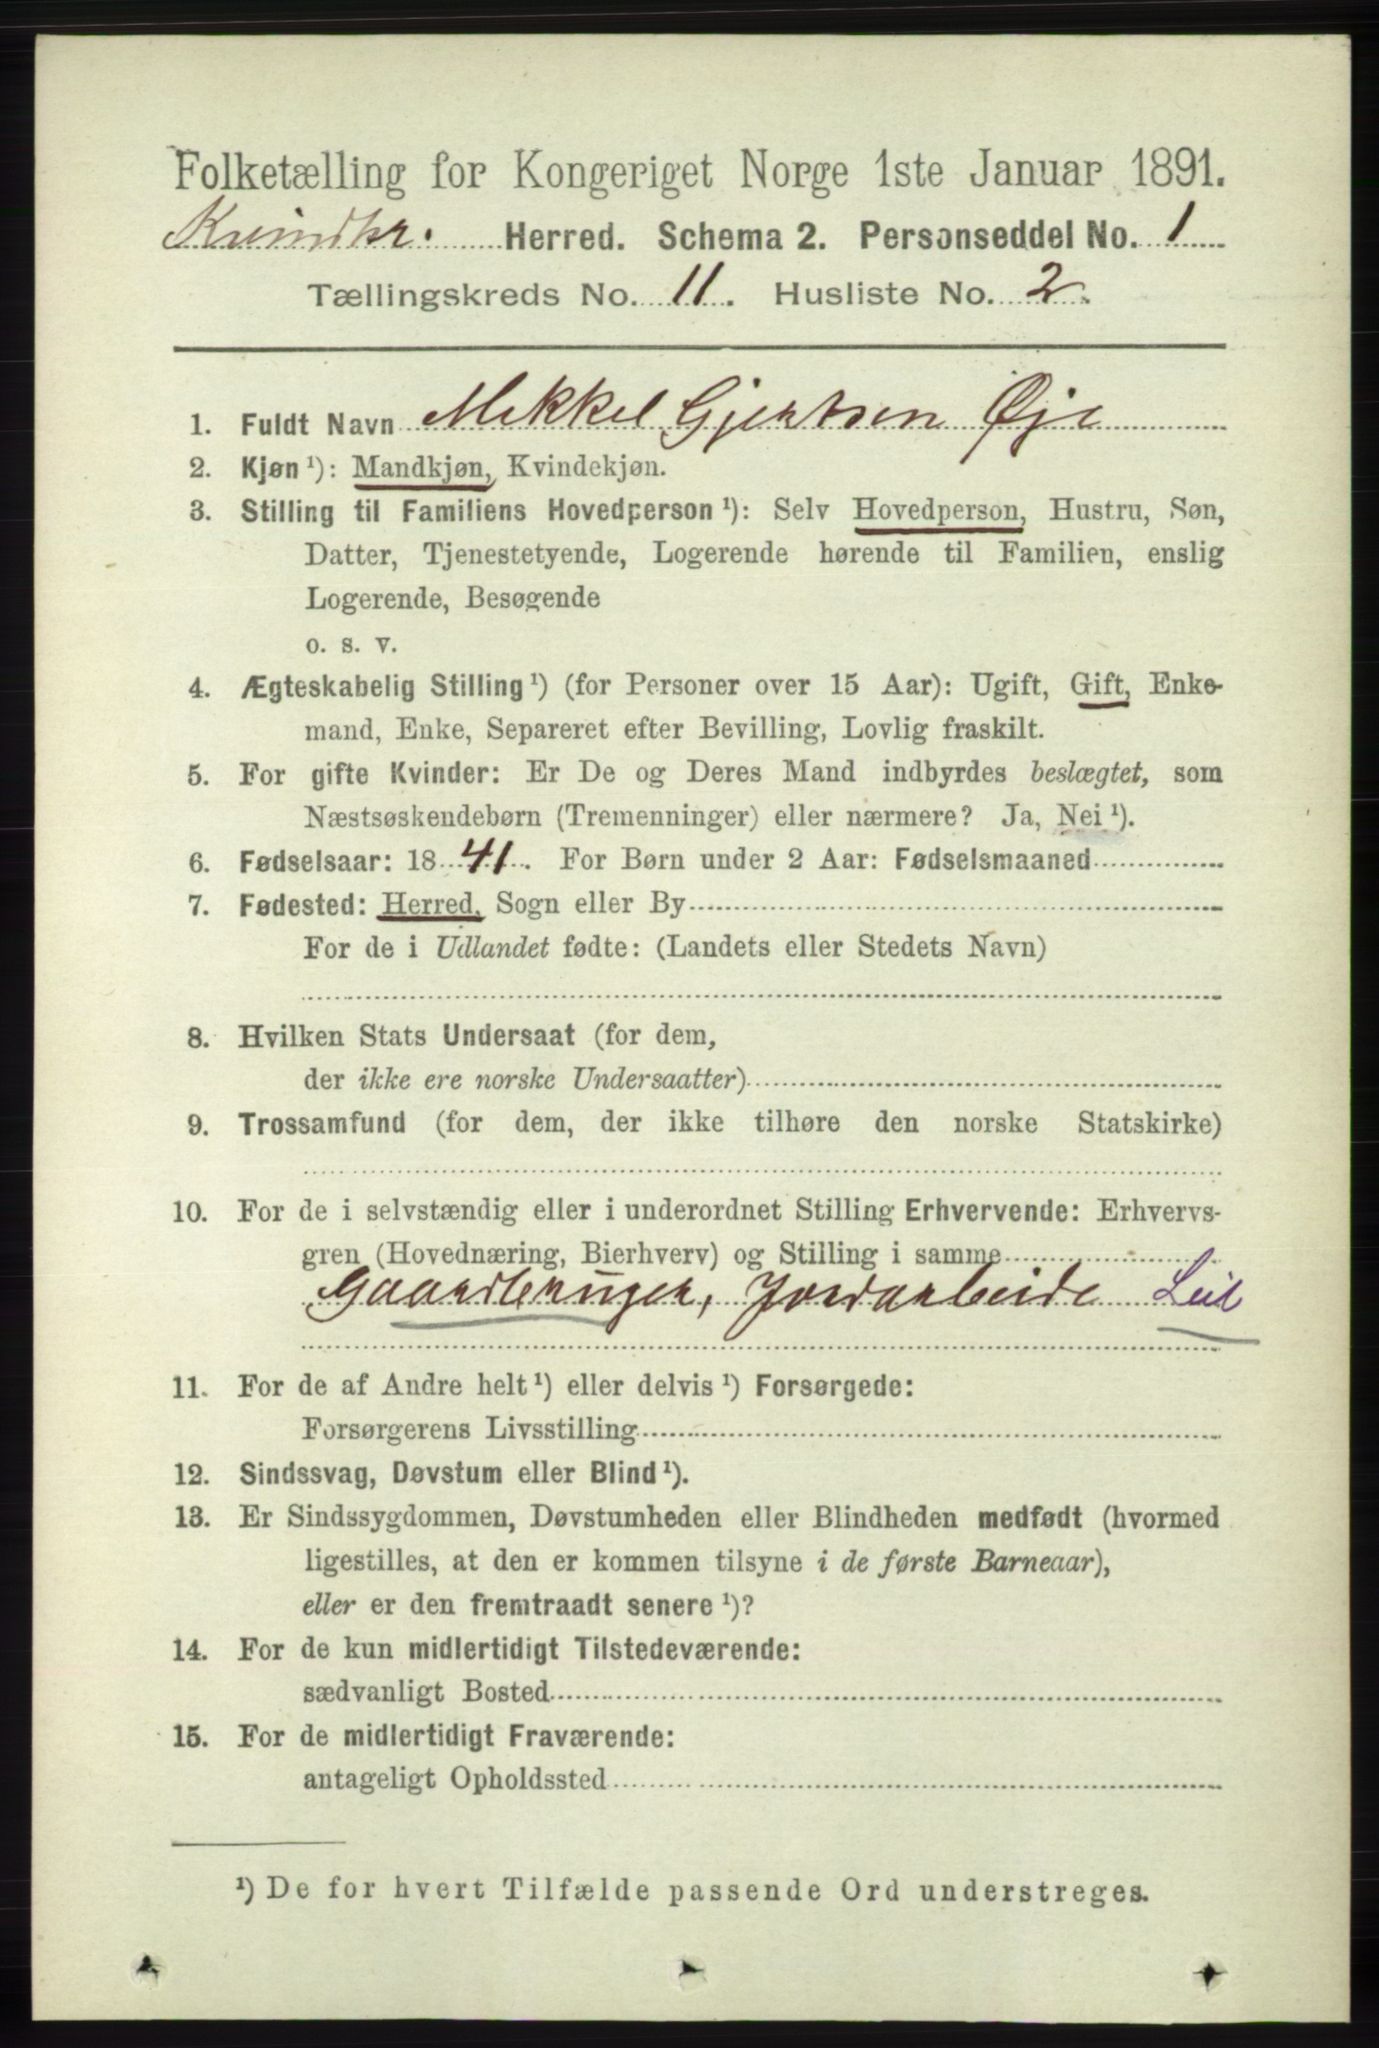 Folketælling for Kongeriget Norge 1ste Januar 1891.
Kvindhr. Herred. Schema 2. Personseddel No. 1
Tællingskreds No. 11. Husliste No. 2.
1. Fuldt Navn Mikkel Gjertsen Øje
2. Kjøn ¹): Mandkjøn, Kvindekjøn.
3. Stilling til Familiens Hovedperson ¹): Selv Hovedperson, Hustru, Søn,
Datter, Tjenestetyende, Logerende hørende til Familien, enslig
Logerende, Besøgende
o. s. v.
4. Ægteskabelig Stilling ¹) (for Personer over 15 Aar): Ugift, Gift, Enke-
mand, Enke, Separeret efter Bevilling, Lovlig fraskilt.
5. For gifte Kvinder: Er De og Deres Mand indbyrdes beslægtet, som
Næstsøskendebørn (Tremenninger) eller nærmere? Ja, Nei ¹).
6. Fødselsaar: 1841. For Børn under 2 Aar: Fødselsmaaned
7. Fødested: Herred, Sogn eller By
For de i Udlandet fødte: (Landets eller Stedets Navn)
8. Hvilken Stats Undersaat (for dem,
der ikke ere norske Undersaatter)
9. Trossamfund (for dem, der ikke tilhøre den norske Statskirke)
10. For de i selvstændig eller i underordnet Stilling Erhvervende: Erhvervs-
gren (Hovednæring, Bierhverv) og Stilling i samme
Gaardbruger, Jordarbeide Leil
11. For de af Andre helt ¹) eller delvis ¹) Forsørgede:
Forsørgerens Livsstilling
12. Sindssvag, Døvstum eller Blind ¹).
13. Er Sindssygdommen, Døvstumheden eller Blindheden medfødt (hvormed
ligestilles, at den er kommen tilsyne i de første Barneaar),
eller er den fremtraadt senere ¹)?
14. For de kun midlertidigt Tilstedeværende:
sædvanligt Bosted
15. For de midlertidigt Fraværende:
antageligt Opholdssted
¹) De for hvert Tilfælde passende Ord understreges.